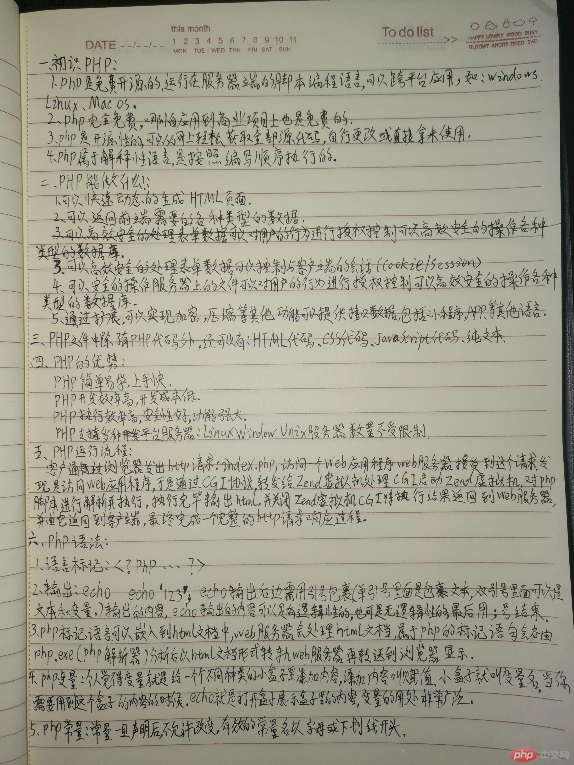 this month
DATE --/--/-- 1 2 3 4 5 6 7 8 9 10 11 To do list >>
MON TUE WED THU FRI SAT SUN
HAPPY LOVELY GOOD BUSY
GLOOMY ANGRY TIRED SAD
一.初识PHP:
1.php是免费开源的,运行在服务器端的脚本编程语言,可以跨平台应用,如:windows
Linux、Mac os。
2.php完全免费,应用到商业项目上也是免费的。
3.php是开源性的,可以网上轻松获取全部源代码,自行更改或直接拿来使用。
4.php属于解释性语言,是按照编写顺序执行的。
二.PHP能做什么:
1.可以快速动态的生成HTML页面.
2.可以返回前端需要的各种类型的数据.
3.可以高效安全的处理表单数据可以对用户的行为进行授权控制可以高效安全的操作各种
类型的数据库.
3.可以高效安全的处理表单数据可以控制与客户端的会话(Cookie/Session)
4.可以安全的操作服务器上的文件可以对用户的行为进行授权控制可以高效安全的操作各种
类型的数据库.
5.通过扩展,可以实现加密,压缩等其他功能可提供接口数据,包括小程序,APP等其他语言.
三.PHP文件中除PHP代码外,还可以有:HTML代码、CSS代码、JavaScript代码、纯文本.
四.PHP的优势:
PHP简单易学,上手快.
PHP开发效率高,开发成本低.
PHP执行效率高,安全性好,功能强大.
PHP支持多种开发平台服务器:Linux Window Unix服务器数量不受限制.
五.PHP运行流程:
客户端通过浏览器发出http请求:index.php,访问一个web应用程序web服务器接受到这个请求发
现是访问web应用程序,于是通过CGI协议,转发给Zend虚拟机处理CGI启动Zend虚拟机,对php
脚本进行解析并执行,执行完毕输出html,并关闭Zend虚拟机CGI将执行结果返回到Web服务器,
并由它返回到客户端,最终完成一个完整的http请求-响应过程.
六.PHP语法:
1.语言标记:<?php ··· ?>
2.输出:echo echo '123'; echo输出右边需用引号包裹(单引号里面是包裹文本,双引号里面可以是
文本和变量.)输出的内容,echo输出的内容可以是有逻辑性的,也可是无逻辑性的,最后用;号结束.
3.php标记语言可以嵌入到html文档中,web服务器会处理html文档,属于php的标记语句会各由
php.exe(php解析器)分析后以html文档形式转到web服务器再转送到浏览器显示.
4.php变量:个人觉得变量就是给一个不同种类的小盒子里添加内容,添加内容叫赋值,小盒子就叫变量名,当你
需要用到这个盒子的内容的时候,echo就是打开盒子展示盒子里的内容,变量的用处非常广泛.
5.php常量:常量一旦声明后不允许改变,有效的常量名以字母或下划线开头.
php中文网